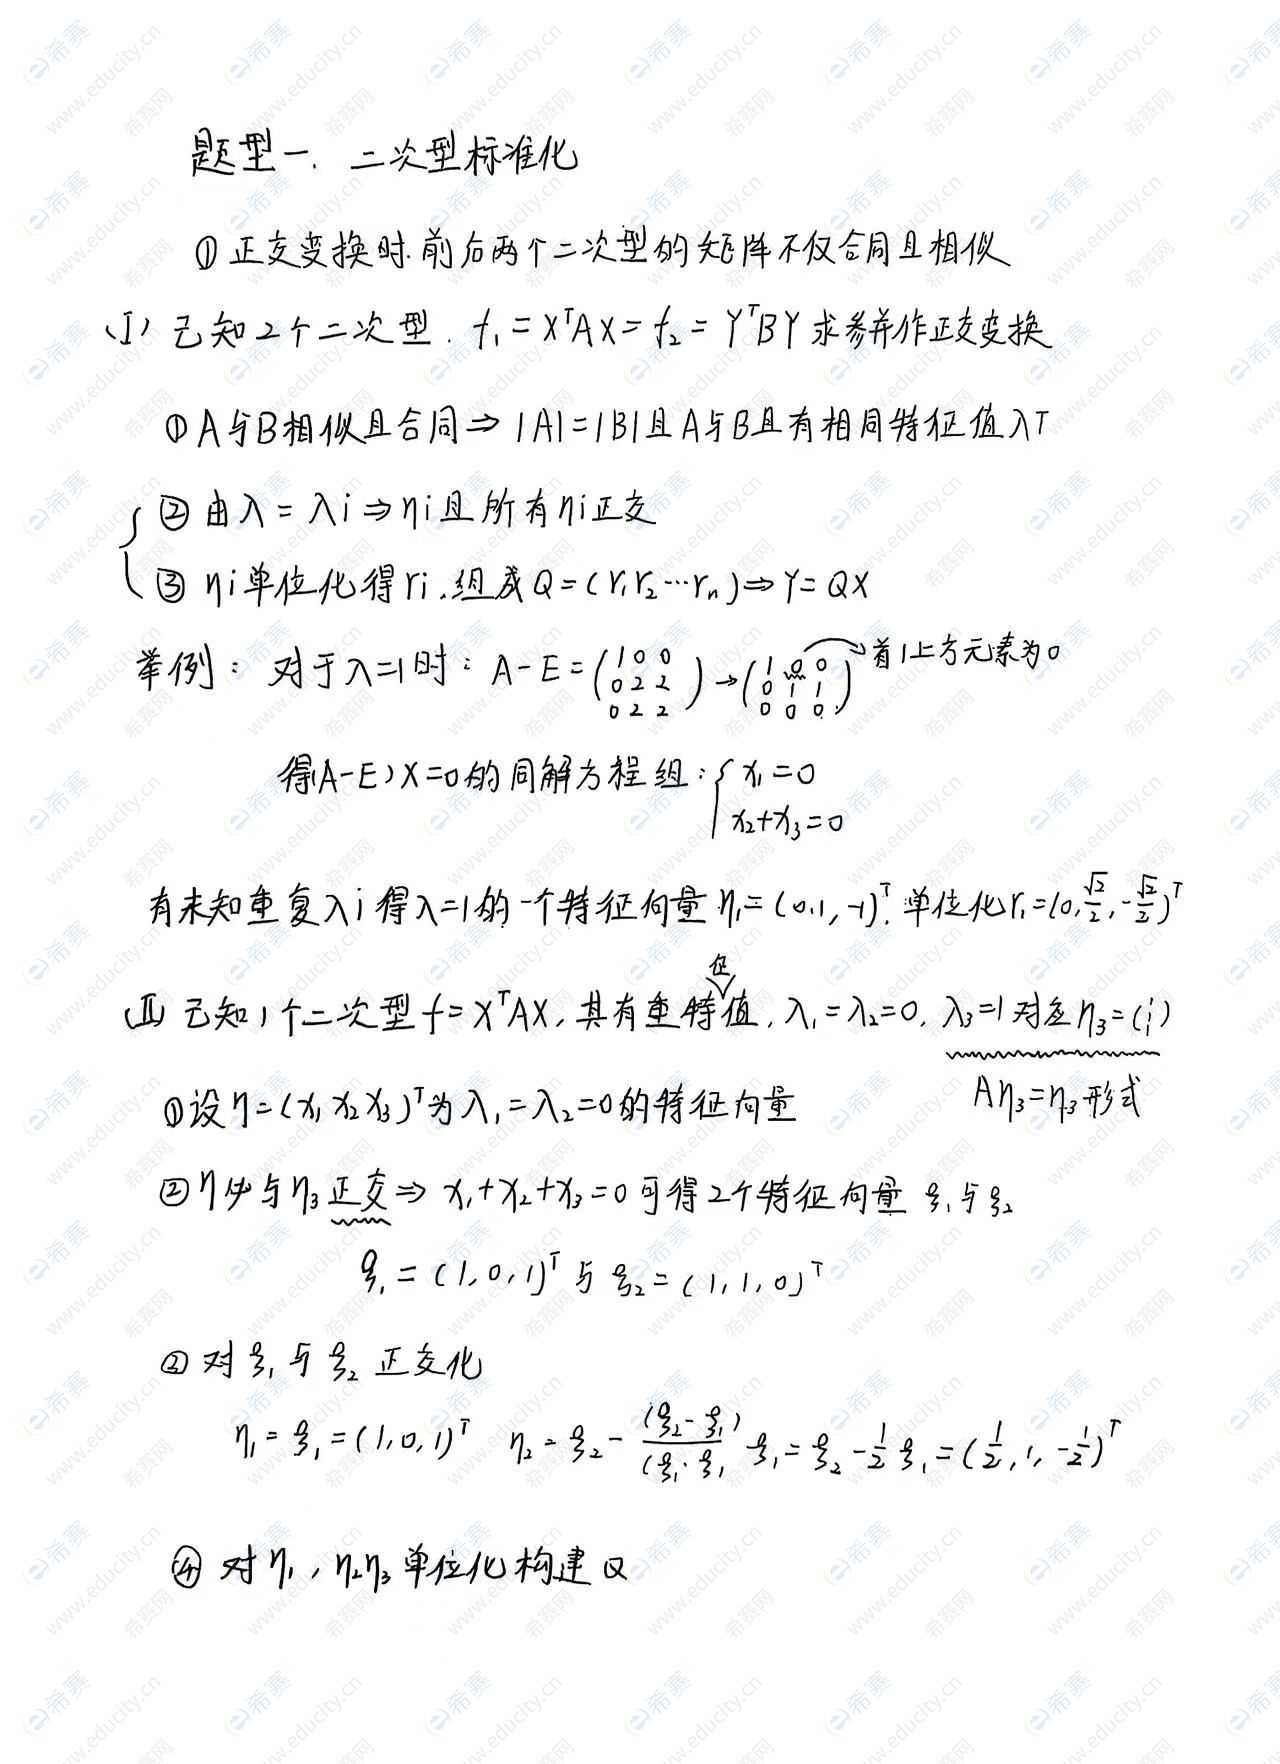 题型一. 二次型标准化
①正交变换时.前后两个二次型的矩阵不仅合同且相似
(I) 已知2个二次型. f₁=XᵀAX=f₂=YᵀBY求参并作正交变换
①A与B相似且合同⇒|A|=|B|且A与B且有相同特征值λT
②由λ=λi⇒ηi且所有ηi正交
③ηi单位化得ri.组成Q=(r₁r₂…rₙ)⇒Y=QX
举例: 对于λ=1时: A-E=(1 0 0
0 2 2
0 2 2)→(1 0 0
0 1 1
0 0 0) 首1上方元素为0
得(A-E)X=0的同解方程组:{x₁=0
x₂+x₃=0
有未知重复λi得λ=1的一个特征向量η₁=(0.1,-1)ᵀ.单位化r₁=(0,√2/2,-√2/2)ᵀ
(II) 已知1个二次型f=XᵀAX,其有重特征值,λ₁=λ₂=0. λ₃=1对应η₃=(1
1
1)
Aη₃=η₃形式
①设η=(x₁x₂x₃)ᵀ为λ₁=λ₂=0的特征向量
②η必与η₃正交⇒x₁+x₂+x₃=0可得2个特征向量ξ₁与ξ₂
ξ₁=(1,0,1)ᵀ与ξ₂=(1,1,0)ᵀ
②对ξ₁与ξ₂正交化
η₁=ξ₁=(1,0,1)ᵀ η₂=ξ₂-(ξ₂-ξ₁)/(ξ₁·ξ₁ ξ₁=ξ₂-1/2ξ₁=(1/2,1,-1/2)ᵀ
④对η₁,η₂η₃单位化构建Q
希赛
www.educity.cn
希赛网